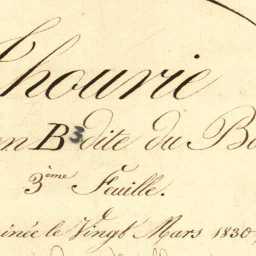 Thourie
on B3 dite du Bo
3ème Feuille.
inée le Vingt Mars 1830,